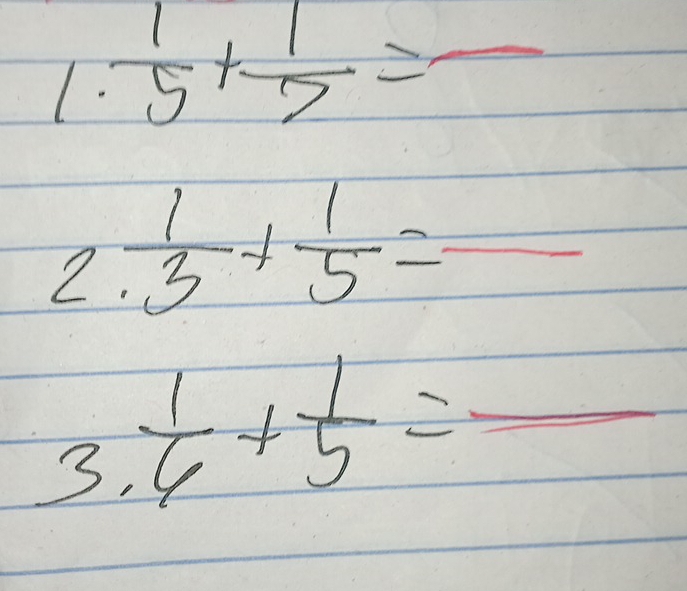 1. 1/5 + 1/7 =
2. 1/3 + 1/5 =
3. 1/6 + 1/5 =